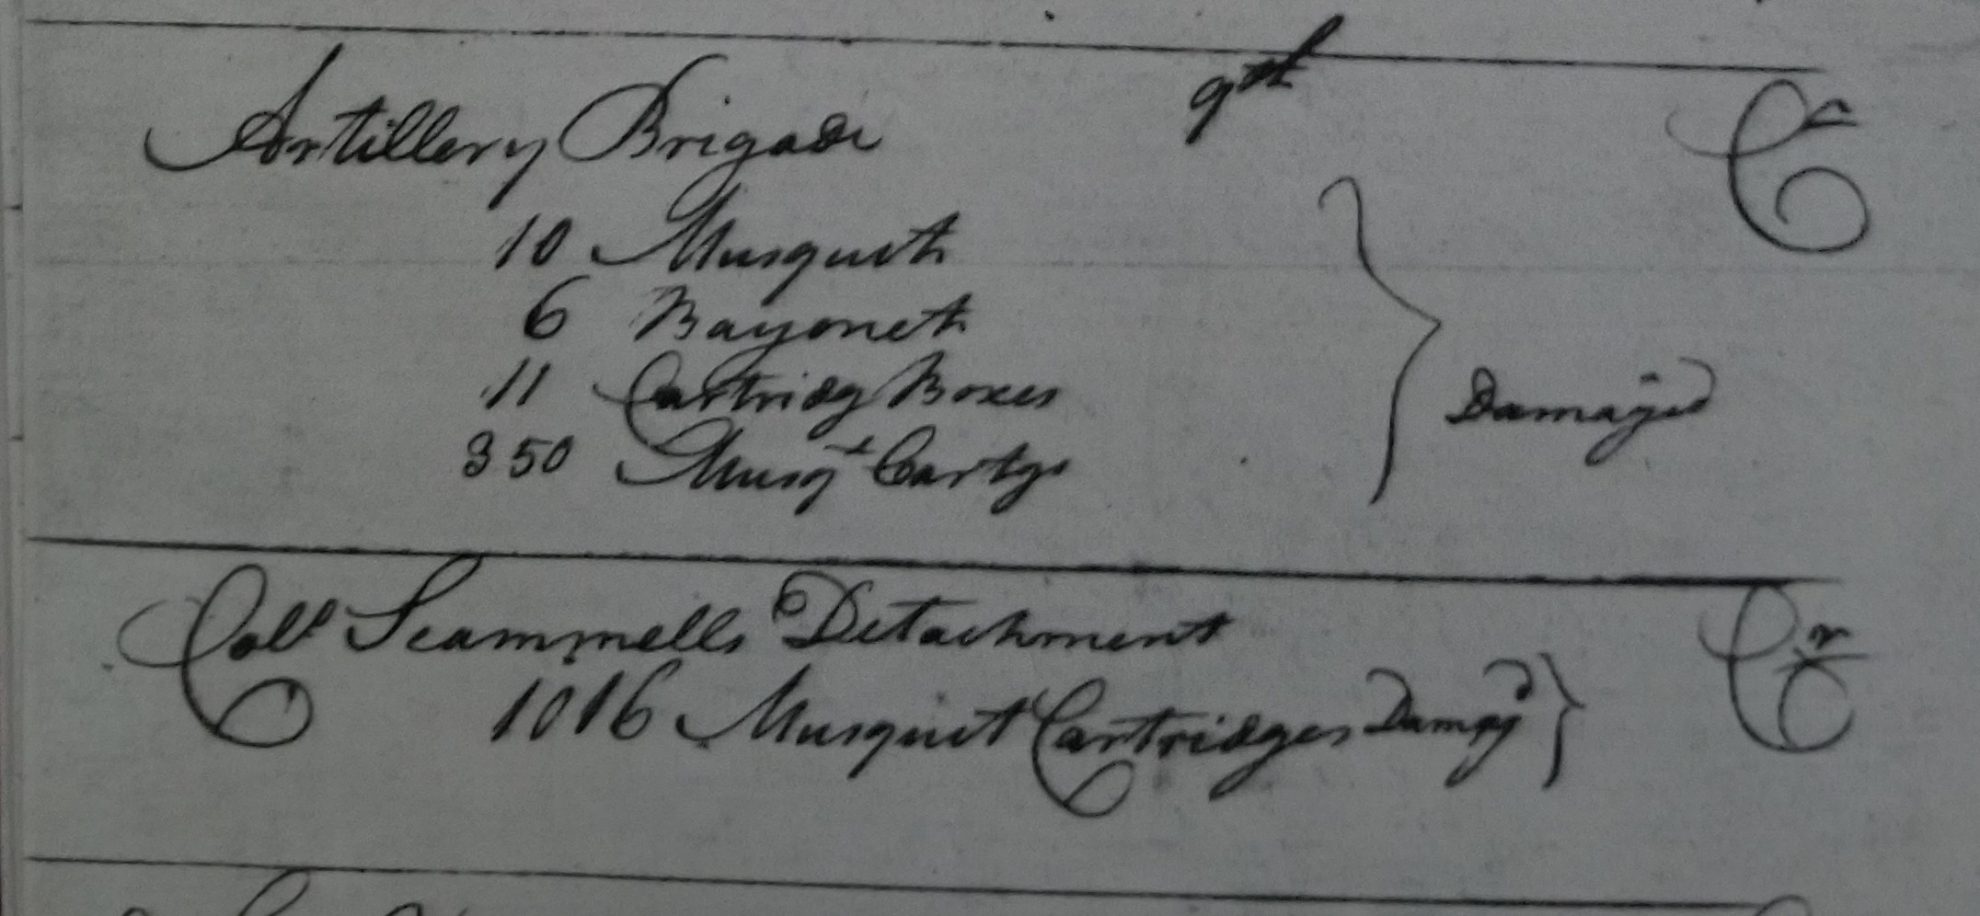 9th
Artillery Brigade Cr
10 Musquets
6 Bayonets
11 Cartridg Boxes
350 Musqt Cartgs
Damaged
Coll Scammells Detachment Cr
1016 Musquet Cartridges Damgd